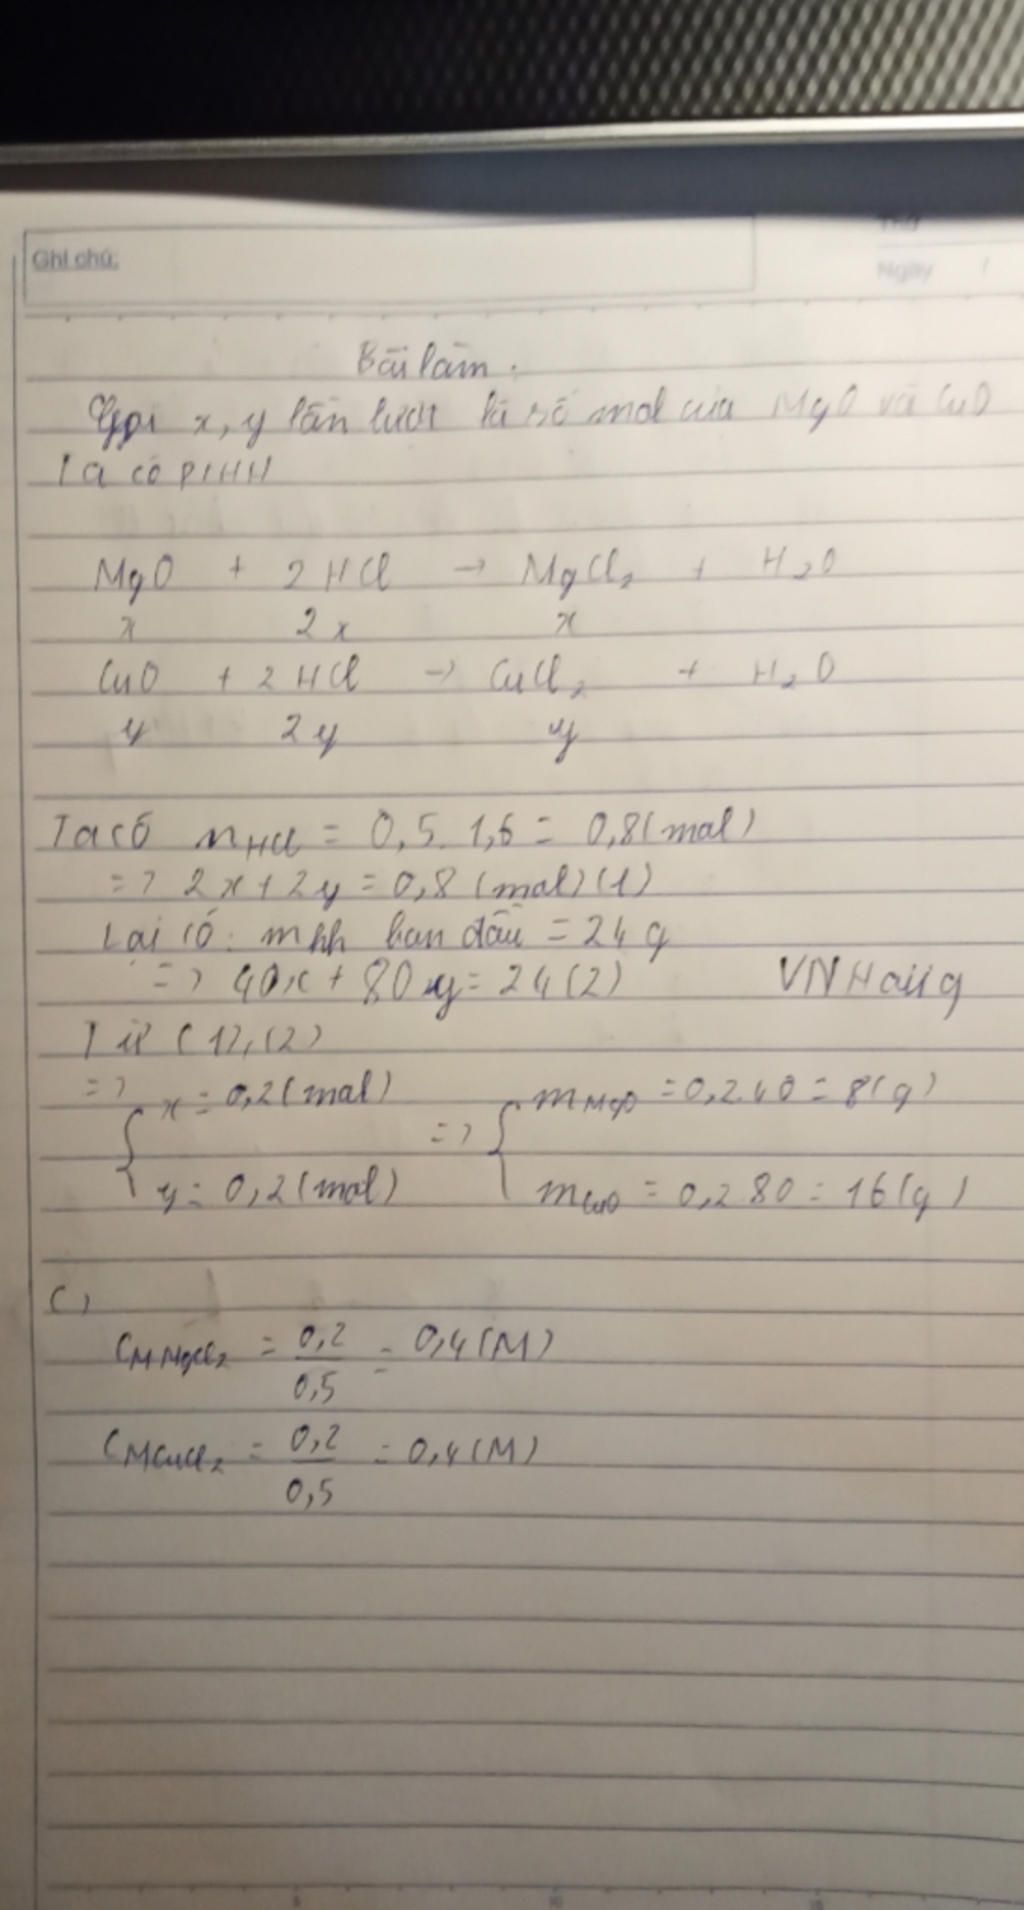 Ghi chú:
Thứ
Ngày /
Bài làm.
Gọi x, y lần lượt là số mol của MgO và CuO
Ta có PTHH
MgO + 2HCl → MgCl₂ + H₂O
x 2x x
CuO + 2HCl → CuCl₂ + H₂O
y 2y y
Ta có nHCl = 0,5. 1,6 = 0,8 (mol)
=> 2x + 2y = 0,8 (mol) (1)
Lại có: mhh ban đầu = 24 g
=> 40x + 80y = 24 (2) VNHang
Từ (1), (2)
=> { x = 0,2 (mol) => { mMgO = 0,2.40 = 8 (g)
y = 0,2 (mol) mCuO = 0,2 80 = 16 (g)
c)
CM MgCl₂ = 0,2/0,5 = 0,4 (M)
CM CuCl₂ = 0,2/0,5 = 0,4 (M)
5 10 15